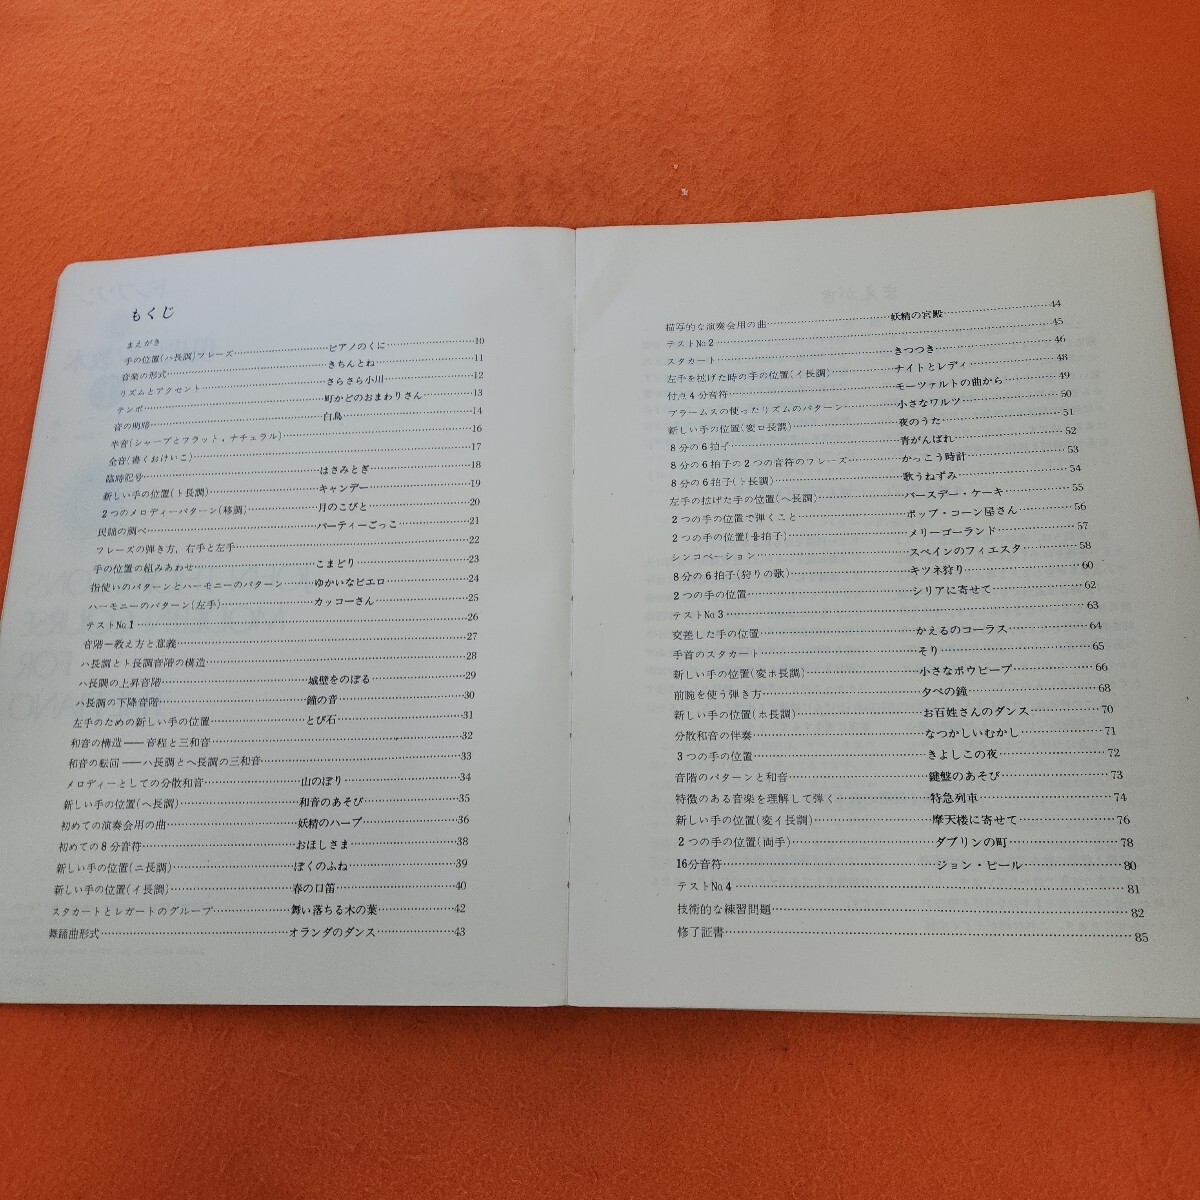 もくじ
まえがき
手の位置(ハ長調)フレーズ……ピアノのくに……10
音楽の形式……きちんとね……11
リズムとアクセント……さらさら小川……12
テンポ……町かどのおまわりさん……13
音の明暗……白鳥……14
半音(シャープとフラット，ナチュラル)……16
全音(書くおけいこ)……17
臨時記号……はさみとぎ……18
新しい手の位置(ト長調)……キャンデー……19
2つのメロディーパターン(移調)……月のこびと……20
民謡の調べ……パーティーごっこ……21
フレーズの弾き方，右手と左手……22
手の位置の組みあわせ……こまどり……23
指使いのパターンとハーモニーのパターン……ゆかいなピエロ……24
ハーモニーのパターン(左手)……カッコーさん……25
テスト№1……26
音階－教え方と意義……27
ハ長調とト長調音階の構造……28
ハ長調の上昇音階……城壁をのぼる……29
ハ長調の下降音階……鐘の音……30
左手のための新しい手の位置……とび石……31
和音の構造――音程と三和音……32
和音の転回――ハ長調とヘ長調の三和音……33
メロディーとしての分散和音……山のぼり……34
新しい手の位置(ヘ長調)……和音のあそび……35
初めての演奏会用の曲……妖精のハープ……36
初めての8分音符……おほしさま……38
新しい手の位置(ニ長調)……ぼくのふね……39
新しい手の位置(イ長調)……春の口笛……40
スタカートとレガートのグループ……舞い落ちる木の葉……42
舞踊曲形式……オランダのダンス……43
描写的な演奏会用の曲……妖精の宮殿……44
テスト№2……45
スタカート……きつつき……46
左手を拡げた時の手の位置(イ長調)……ナイトとレディ……48
付点4分音符……モーツァルトの曲から……49
ブラームスの使ったリズムのパターン……小さなワルツ……50
新しい手の位置(変ロ長調)……夜のうた……51
8分の6拍子……青がんばれ……52
8分の6拍子の2つの音符のフレーズ……かっこう時計……53
8分の6拍子(ト長調)……歌うねずみ……54
左手の拡げた手の位置(ヘ長調)……バースデー・ケーキ……55
2つの手の位置で弾くこと……ポップ・コーン屋さん……56
2つの手の位置(拍子)……メリーゴーランド……57
シンコペーション……スペインのフィエスタ……58
8分の6拍子(狩りの歌)……キツネ狩り……60
2つの手の位置……シリアに寄せて……62
テスト№3……63
交差した手の位置……かえるのコーラス……64
手首のスタカート……そり……65
新しい手の位置(変ホ長調)……小さなボウピープ……66
前腕を使う弾き方……夕べの鐘……68
新しい手の位置(ホ長調)……お百姓さんのダンス……70
分散和音の伴奏……なつかしいむかし……71
3つの手の位置……きよしこの夜……72
音階のパターンと和音……鍵盤のあそび……73
特徴のある音楽を理解して弾く……特急列車……74
新しい手の位置(変イ長調)……摩天楼に寄せて……76
2つの手の位置(両手)……ダブリンの町……78
16分音符……ジョン・ピール……80
テスト№4……81
技術的な練習問題……82
修了証書……85